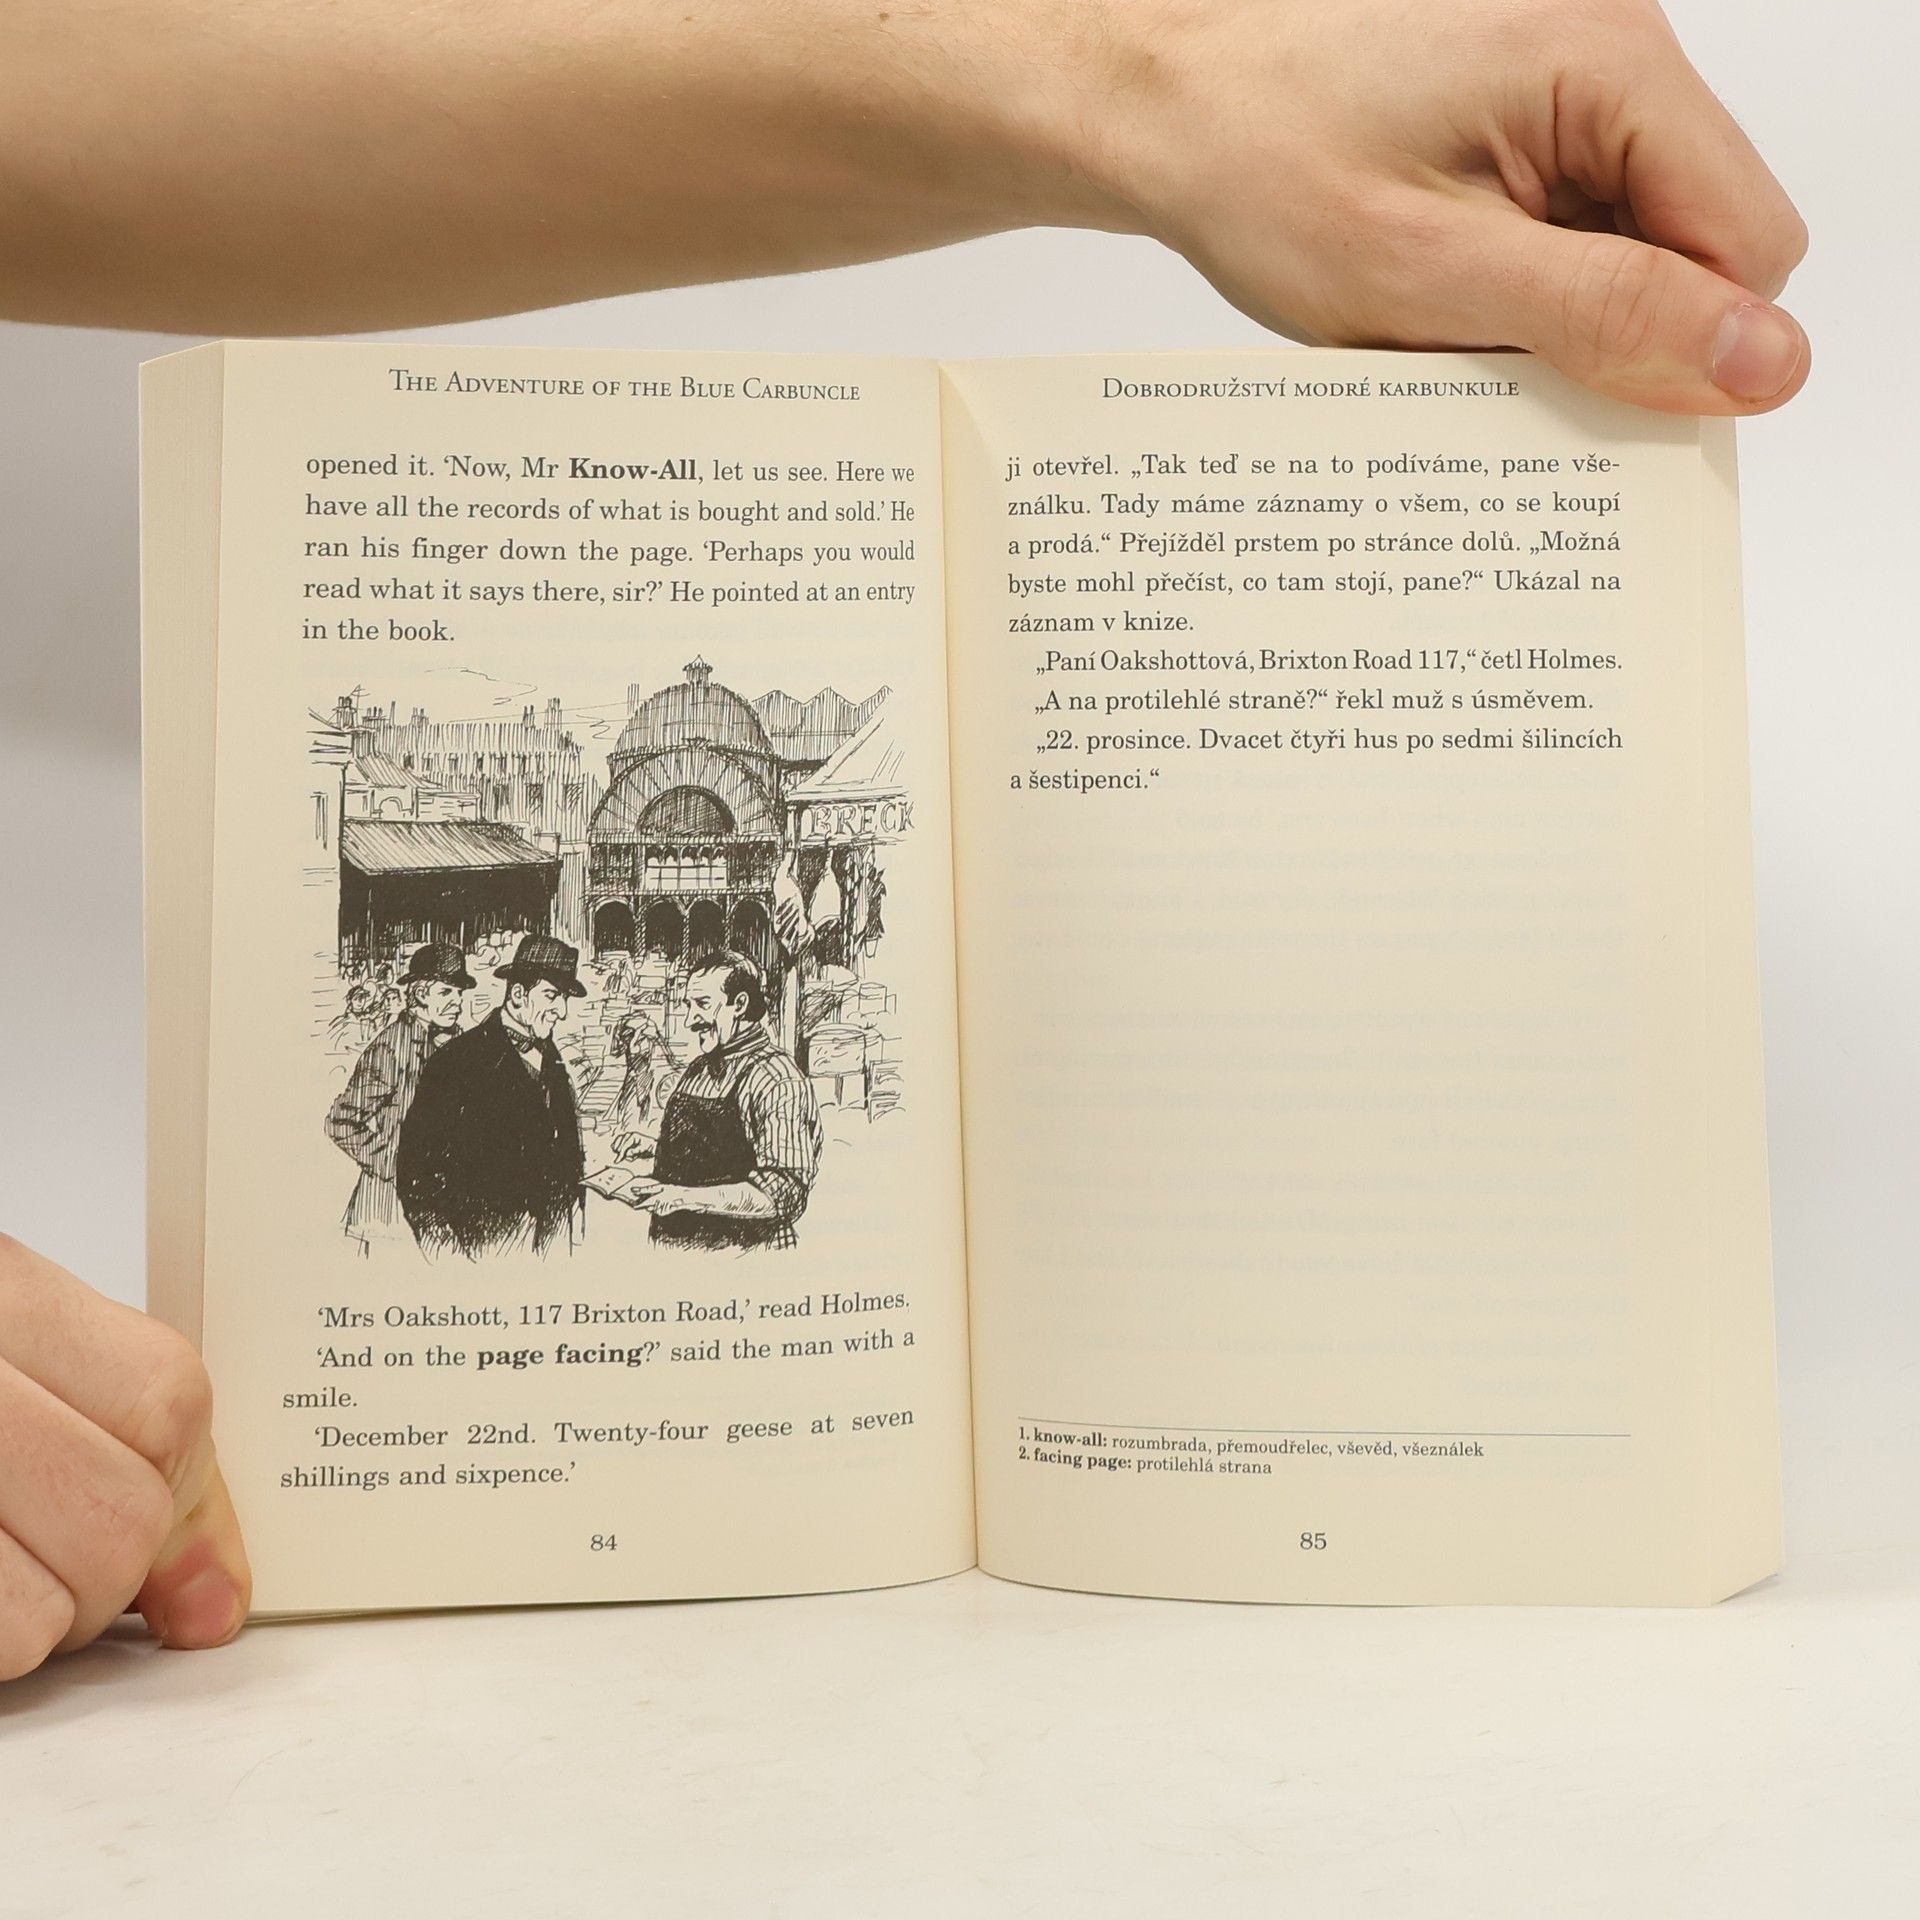 THE ADVENTURE OF THE BLUE CARBUNCLE
opened it. ‘Now, Mr Know-All, let us see. Here we
have all the records of what is bought and sold.’ He
ran his finger down the page. ‘Perhaps you would
read what it says there, sir?’ He pointed at an entry
in the book.
BRECK
‘Mrs Oakshott, 117 Brixton Road,’ read Holmes.
‘And on the page facing?’ said the man with a
smile.
‘December 22nd. Twenty-four geese at seven
shillings and sixpence.’
84
DOBRODRUŽSTVÍ MODRÉ KARBUNKULE
ji otevřel. „Tak teď se na to podíváme, pane vše-
ználku. Tady máme záznamy o všem, co se koupí
a prodá.“ Přejížděl prstem po stránce dolů. „Možná
byste mohl přečíst, co tam stojí, pane?“ Ukázal na
záznam v knize.
„Paní Oakshottová, Brixton Road 117,“ četl Holmes.
„A na protilehlé straně?“ řekl muž s úsměvem.
„22. prosince. Dvacet čtyři hus po sedmi šilincích
a šestipenci.“
1. know-all: rozumbrada, přemoudřelec, vševěd, všeználek
2. facing page: protilehlá strana
85